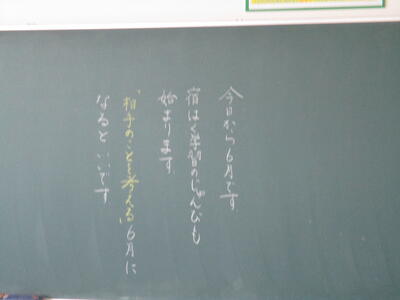 今日から6月です
宿はく学習のじゅんびも
始まります。
"相手のことを考える"6月に
なるといいです